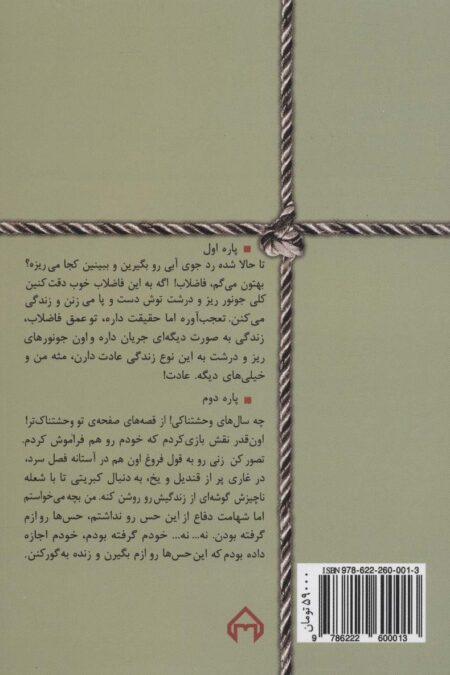 ■ پاره اول
تا حالا شده رد جوی آبی رو بگیرین و ببینین کجا می‌ریزه؟
بهتون می‌گم، فاضلاب! اگه به این فاضلاب خوب دقت کنین
کلی جونور ریز و درشت توش دست و پا می زنن و زندگی
می‌کنن. تعجب‌آوره اما حقیقت داره، تو عمق فاضلاب،
زندگی به صورت دیگه‌ای جریان داره و اون جونورهای
ریز و درشت به این نوع زندگی عادت دارن، مثه من و
خیلی‌های دیگه. عادت!
■ پاره دوم
چه سال‌های وحشتناکی! از قصه‌های صفحه‌ی تو وحشتناک‌تر!
اون‌قدر نقش بازی کردم که خودم رو هم فراموش کردم.
تصور کن زنی رو به قول فروغ اون هم در آستانه فصل سرد،
در غاری پر از قندیل و یخ، به دنبال کبریتی تا با شعله
ناچیزش گوشه‌ای از زندگیش رو روشن کنه. من بچه می‌خواستم
اما شهامت دفاع از این حس رو نداشتم، حس‌ها رو ازم
گرفته بودن. نه... نه... خودم گرفته بودم، خودم اجازه
داده بودم که این حس‌ها رو ازم بگیرن و زنده به گور کنن.
ISBN 978-622-260-001-3
9 786222 600013
۵۹۰۰۰ تومان